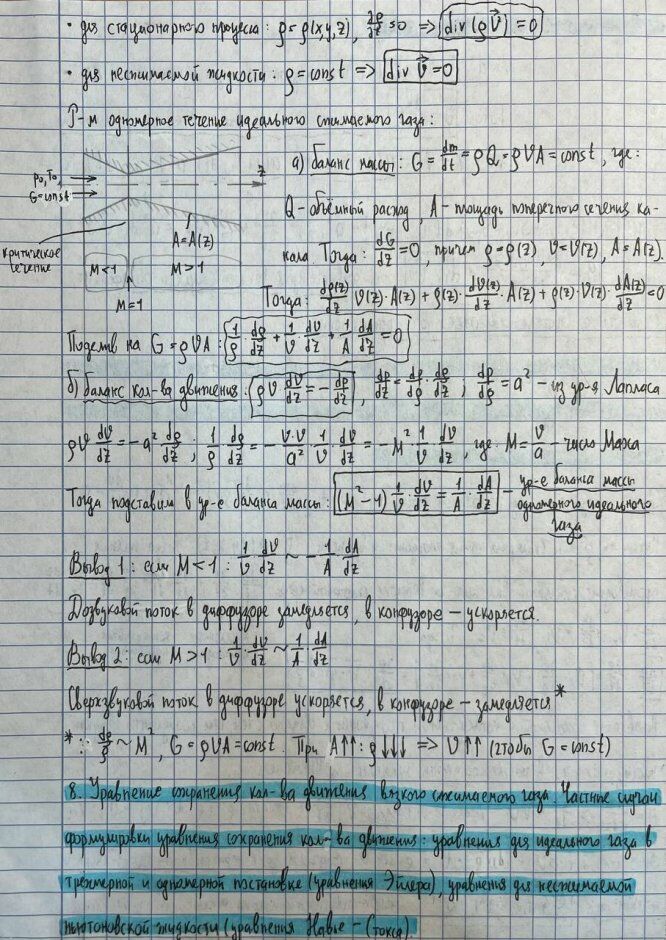 • для стационарного процесса: ρ = ρ(x,y,z), ∂ρ/∂t = 0 => div(ρV⃗) = 0
• для несжимаемой жидкости: ρ = const => div V⃗ = 0
Р-м одномерное течение идеального сжимаемого газа:
p₀, T₀,
G = const
z
A = A(z)
критическое
сечение
M < 1
M > 1
M = 1
а) баланс массы: G = dm/dt = ρQ = ρVA = const, где:
Q - объёмный расход, A - площадь поперечного сечения ка-
нала Тогда: dG/dz = 0, причём ρ = ρ(z), V = V(z), A = A(z).
Тогда: dρ(z)/dz V(z)·A(z) + ρ(z)·dV(z)/dz·A(z) + ρ(z)·V(z)·dA(z)/dz = 0
Поделив на G = ρVA: 1/ρ·dρ/dz + 1/V dV/dz + 1/A dA/dz = 0
б) баланс кол-ва движения: ρV dV/dz = - dp/dz, dp/dz = dp/dρ·dρ/dz; dp/dρ = a² - из ур-я Лапласа
ρV dV/dz = -a² dρ/dz; 1/ρ·dρ/dz = - V·V/a²·1/V·dV/dz = -M² 1/V dV/dz, где M = V/a - число Маха
Тогда подставим в ур-е баланса массы: (M²-1) 1/V·dV/dz = 1/A·dA/dz - ур-е баланса массы
одномерного идеального
газа
Вывод 1: если M < 1: 1/V·dV/dz ~ - 1/A·dA/dz
Дозвуковой поток в диффузоре замедляется, в конфузоре - ускоряется.
Вывод 2: если M > 1: 1/V·dV/dz ~ 1/A·dA/dz
Сверхзвуковой поток в диффузоре ускоряется, в конфузоре - замедляется*
* ∵ dρ/ρ ~ M², G = ρVA = const. При A↑↑: ρ↓↓↓ => V↑↑ (чтобы G = const)
8. Уравнение сохранения кол-ва движения вязкого сжимаемого газа. Частные случаи
формулировки уравнения сохранения кол-ва движения: уравнения для идеального газа в
трёхмерной и одномерной постановке (уравнения Эйлера), уравнения для несжимаемой
ньютоновской жидкости (уравнения Навье-Стокса).